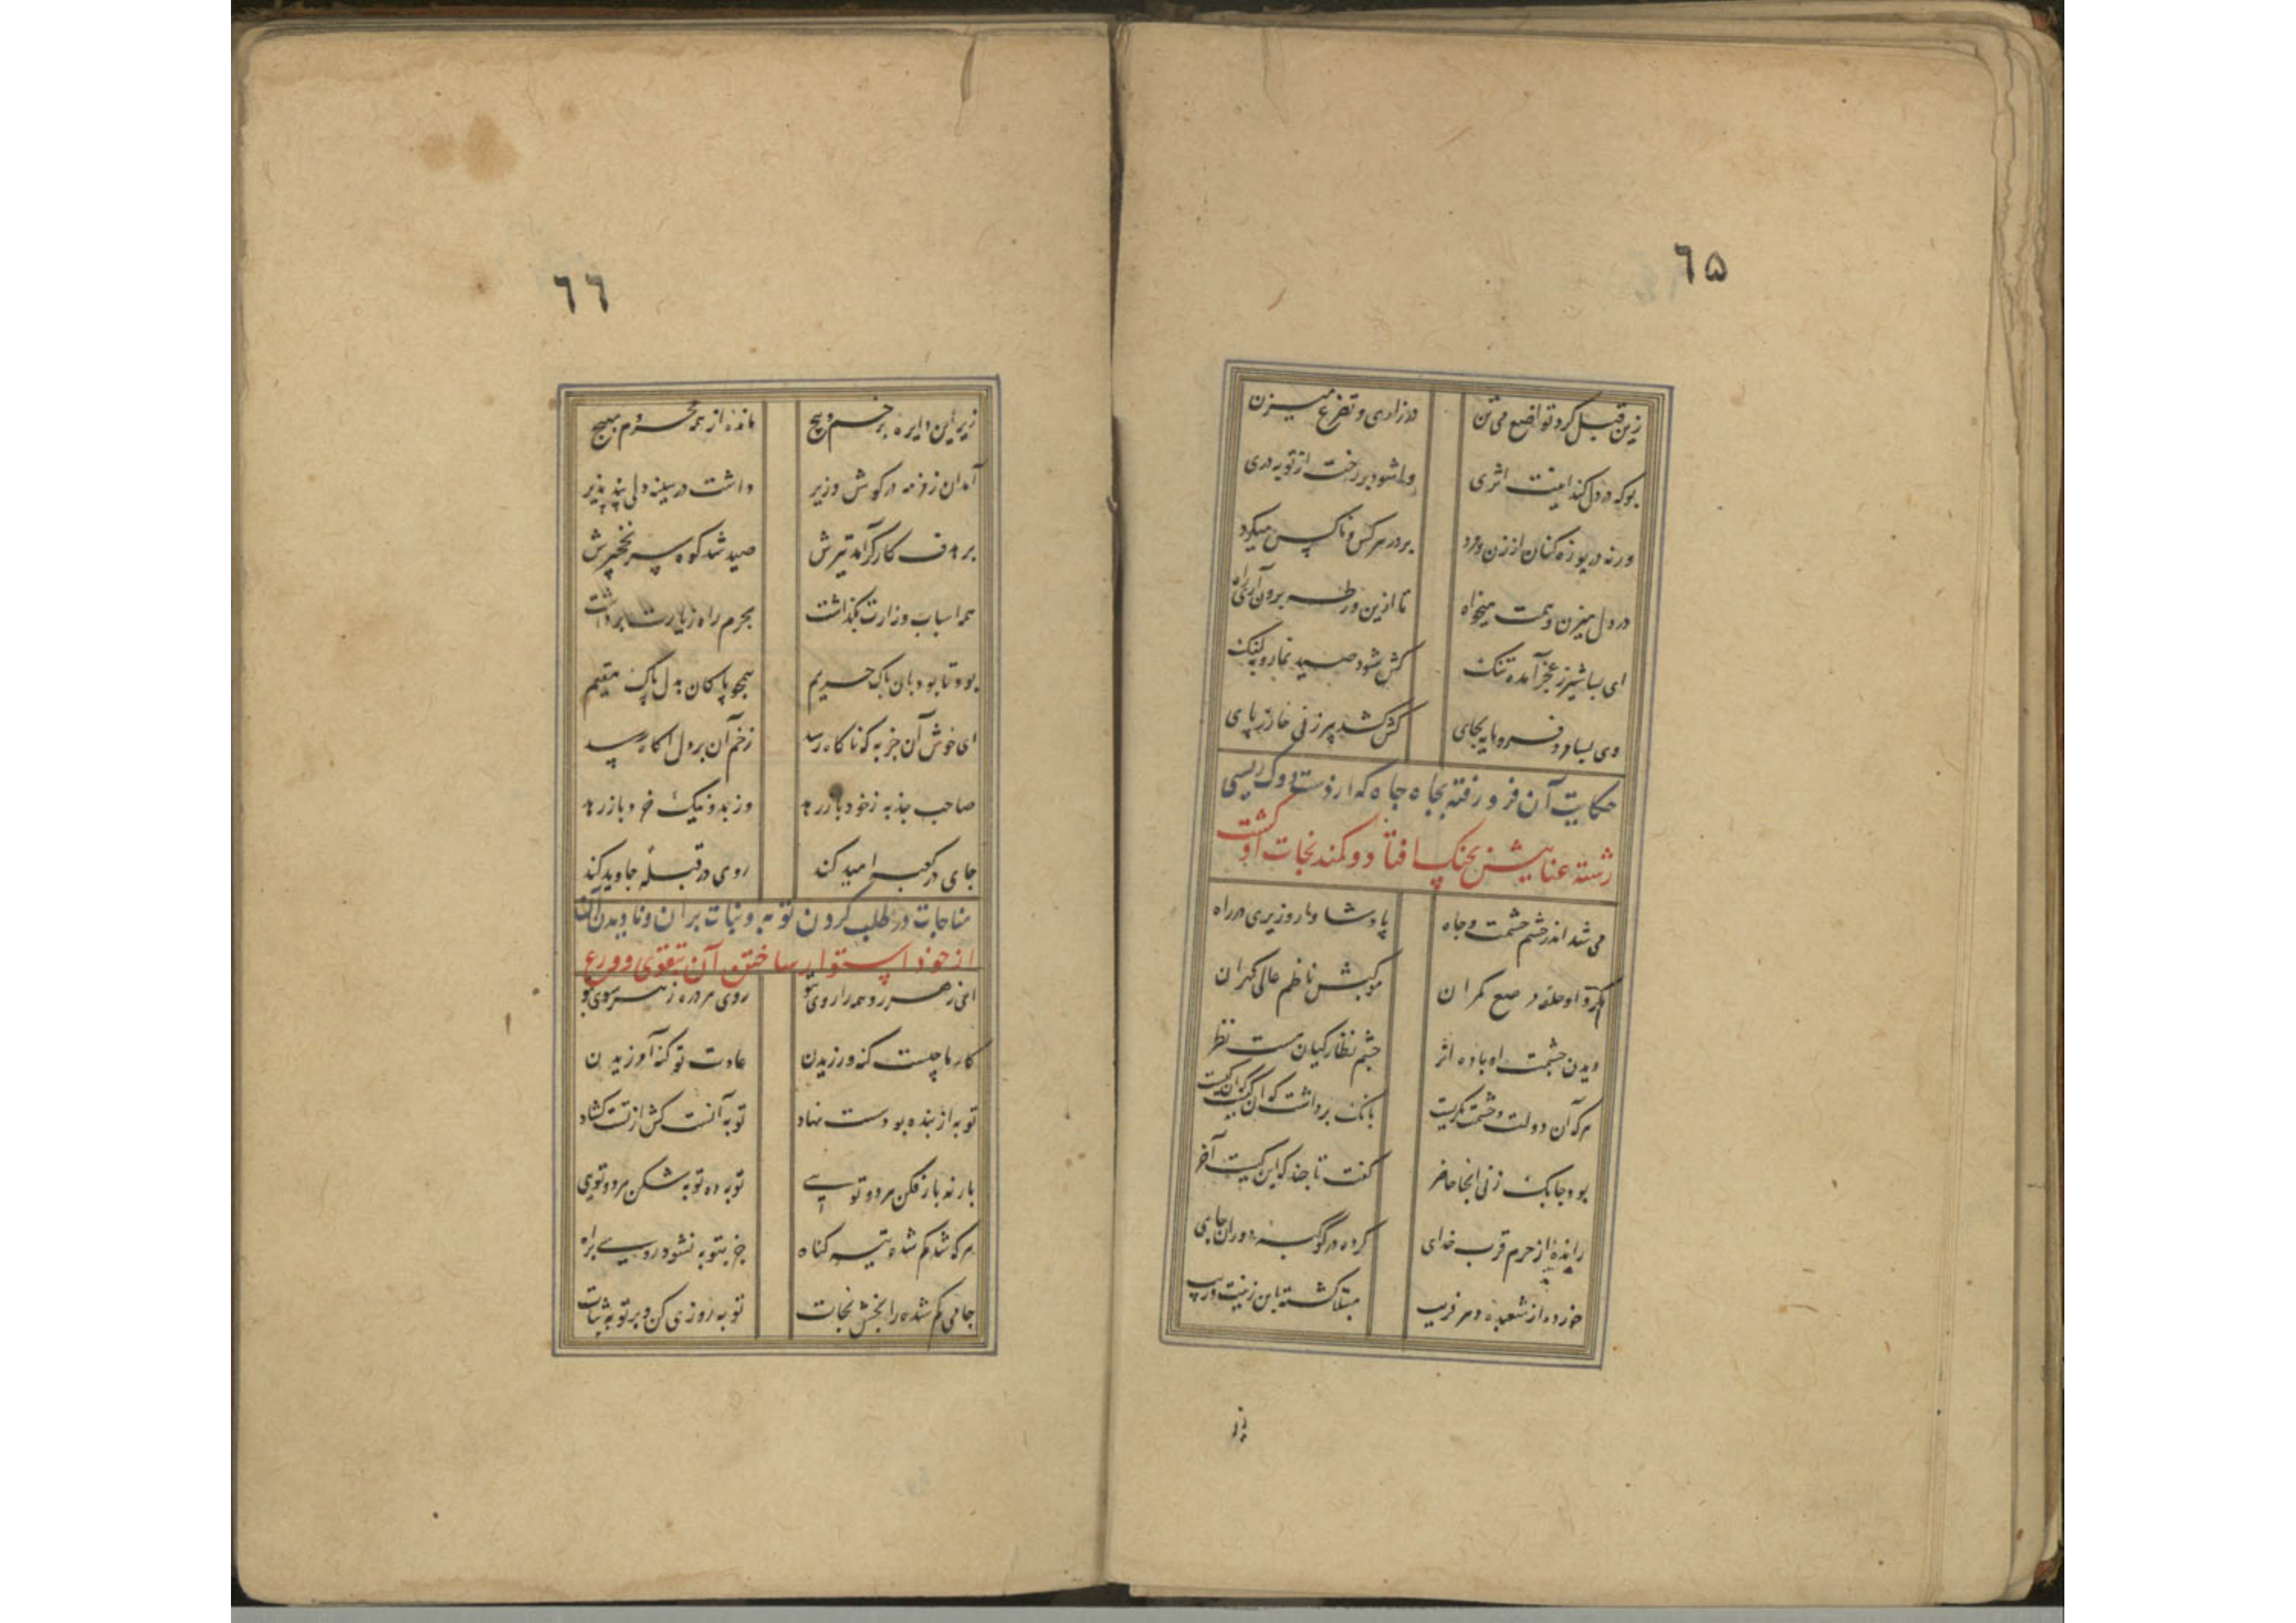 ٦۵
زین قبیل گرد تواضع می تن
در زاری و تضرع میزن
بو که در دل کند اینت اثری
واشود بر رخت از توبه دری
ورنه دریوزه کنان از زن و مرد
بر در هر کس و ناکس میگرد
در دل میزن و همت میخواه
تا ازین ورطه برون آری راه
ای بسا شیر ز عجز آمده تنگ
کش شود صید نما روبه لنگ
وی بسا مرد فرومانده بجای
کش کشد پیرزنی خار ز پای
حکایت آن فرو رفته بچاه جاه که از دست دوک ریسی
رشته عنایتش بچنگ افتاد و کمند نجات او گشت
می شد اندر حشم حشمت و جاه
پادشاوار وزیری در راه
گرد او حلقه مرصع کمران
موکبش ناظم عالی گهران
دیدن حشمت او باده اثر
چشم نظارگیان مست نظر
هر که آن دولت و حشمت نگریست
بانگ برداشت که این کیست این کیست
بود چابک زنی آنجا حاضر
گفت تا چند که این کیست آخر
رانده از حرم قرب خدای
کرده در کوکبه دوران جای
خورده از شعبده دهر فریب
مبتلا گشته باین زینت و زیب
زیر
٦٦
زیر این دایره پر خم و پیچ
مانده از همه محروم بهیچ
آمد آن زمزمه در گوش وزیر
داشت در سینه دلی پند پذیر
بر هدف کارگر آمد تیرش
صید شد کوه سر نخچیرش
همه اسباب وزارت بگذاشت
بحرم راه زیارت برداشت
بود تا بود بان پاک حریم
همچو پاکان بدل پاک مقیم
ای خوش آن جذبه که ناگاه رسد
زخم آن بر دل آگاه رسد
صاحب جذبه ز خود باز رهد
وز بد و نیک خرد باز رهد
جای در کعبه امید کند
روی در قبله جاوید کند
مناجات در طلب کردن توبه و ثبات بران و نادیدن آن
از خود و استوار ساختن آن بتقوی و ورع
ای ز هر رو همه را روی بتو
روی هر ذره ز هر سوی بتو
کار ما چیست گنه ورزیدن
عادت تو گنه آمرزیدن
توبه از بنده بود سست نهاد
توبه آنست کش از تست گشاد
بار نه بارفکن هر دو تویی
توبه ده توبه شکن هر دو تویی
هر که شد گم شده تیه گناه
جز بتوبه نشود روی براه
جامی گم شده را بخش نجات
توبه روزی کن و بر توبه ثبات